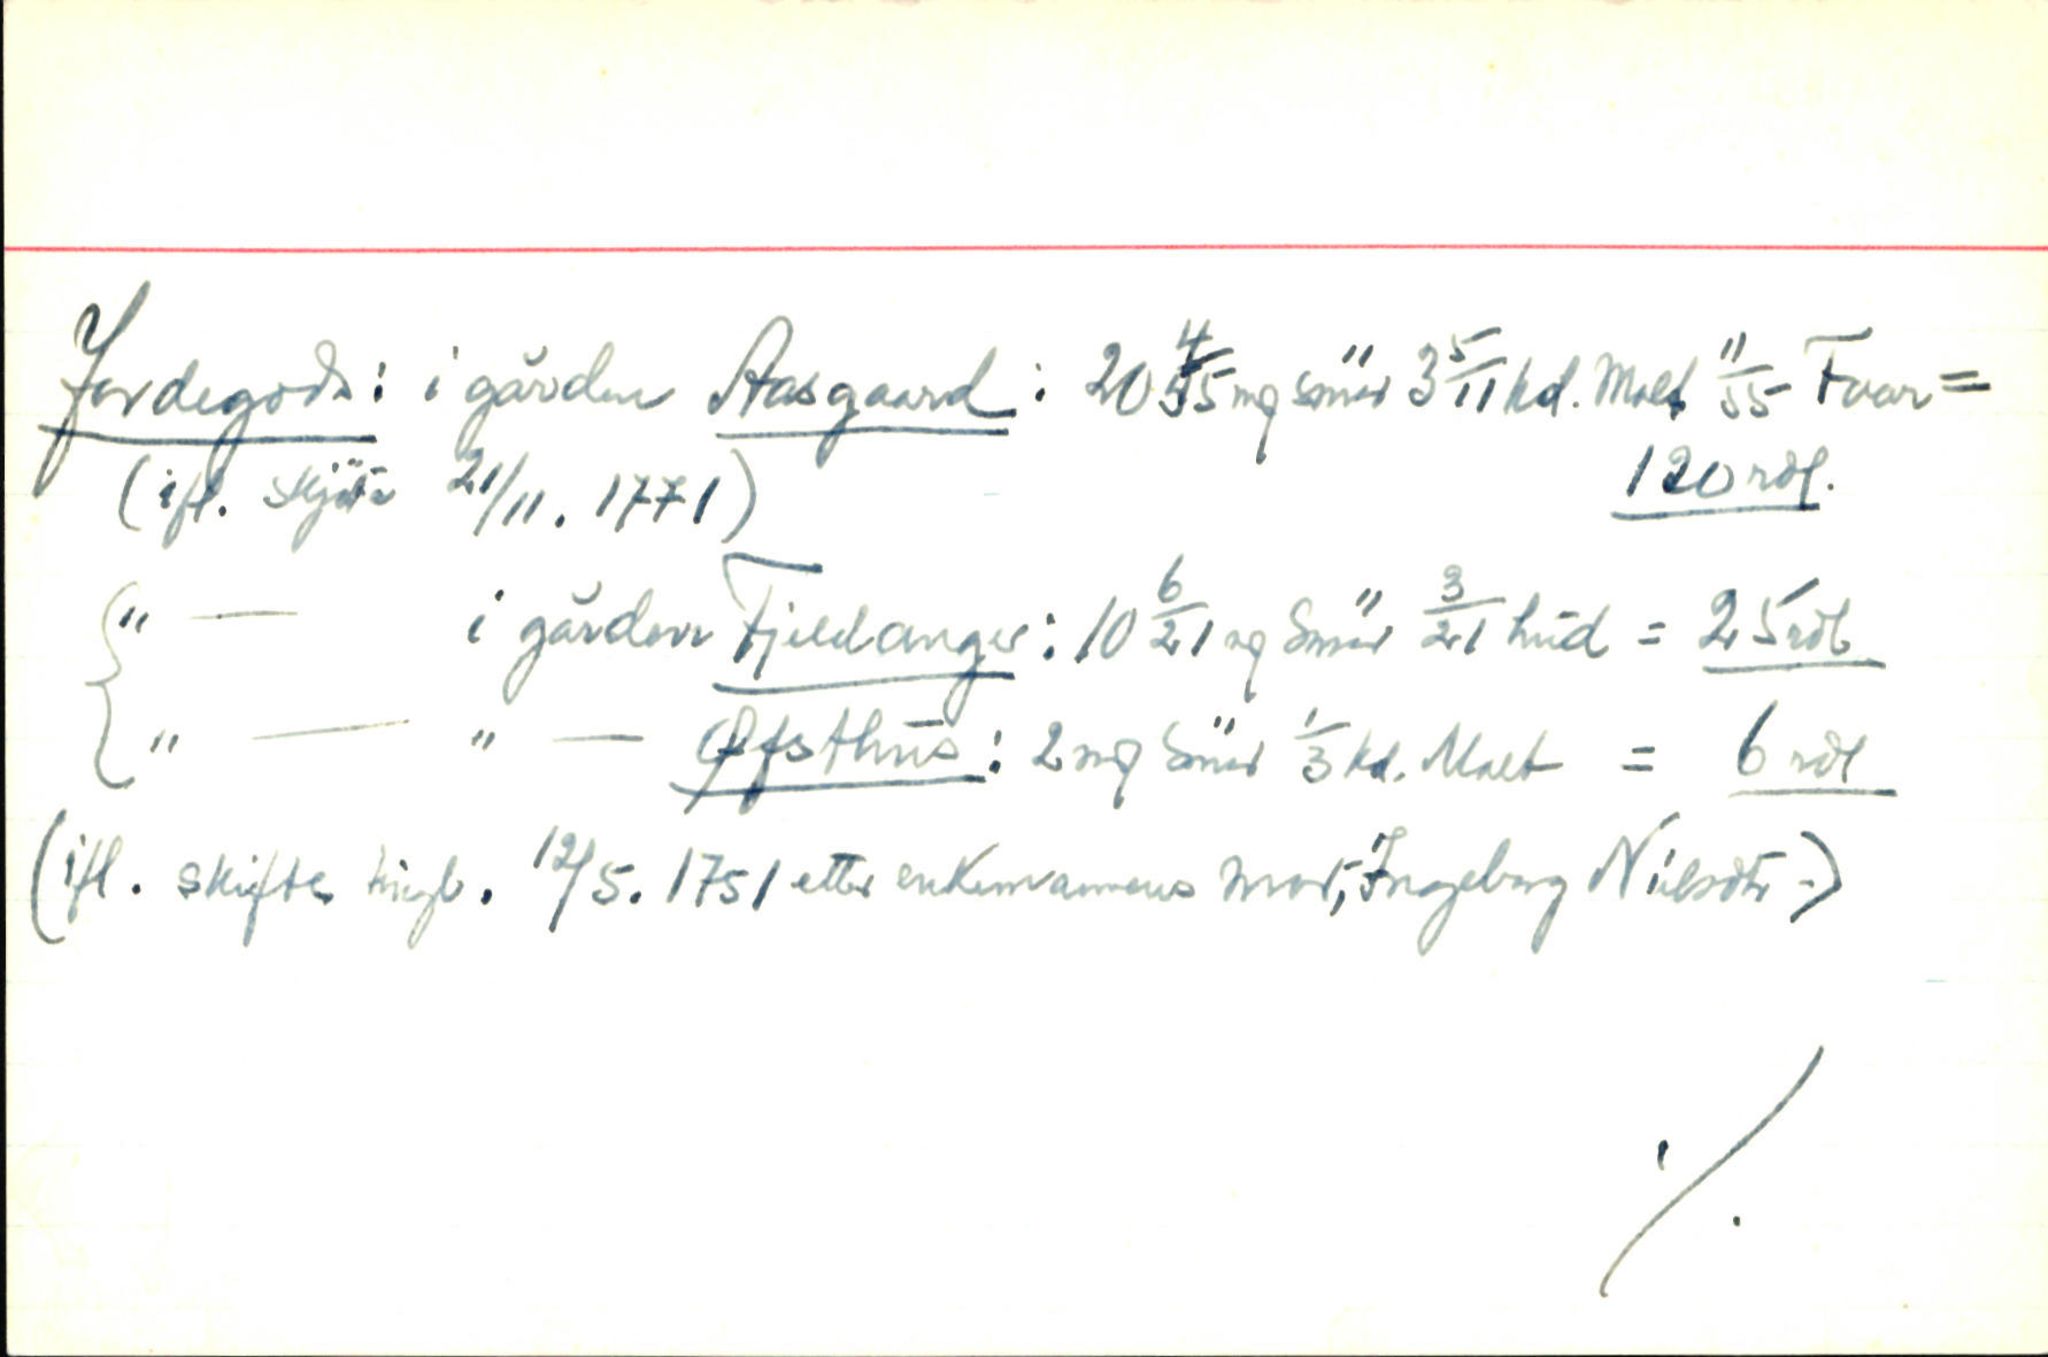 Jordegods: i gården Aasgaard: 20 4/55 mg smör 3 5/11 kd. Malt 11/55 Foar =
(ifl. skjöte 21/11. 1771) 120 rdl.
{ " — i gården Fjeldanger: 10 6/21 mg Smör 3/21 hud = 25 rdl
{ " — " — Øfsthus: 2 mg Smör 1/3 kd. Malt = 6 rdl
(ifl. skifte tingl. 12/5. 1751 etter enkemannens mor, Ingeborg Nilsdtr -)
./.